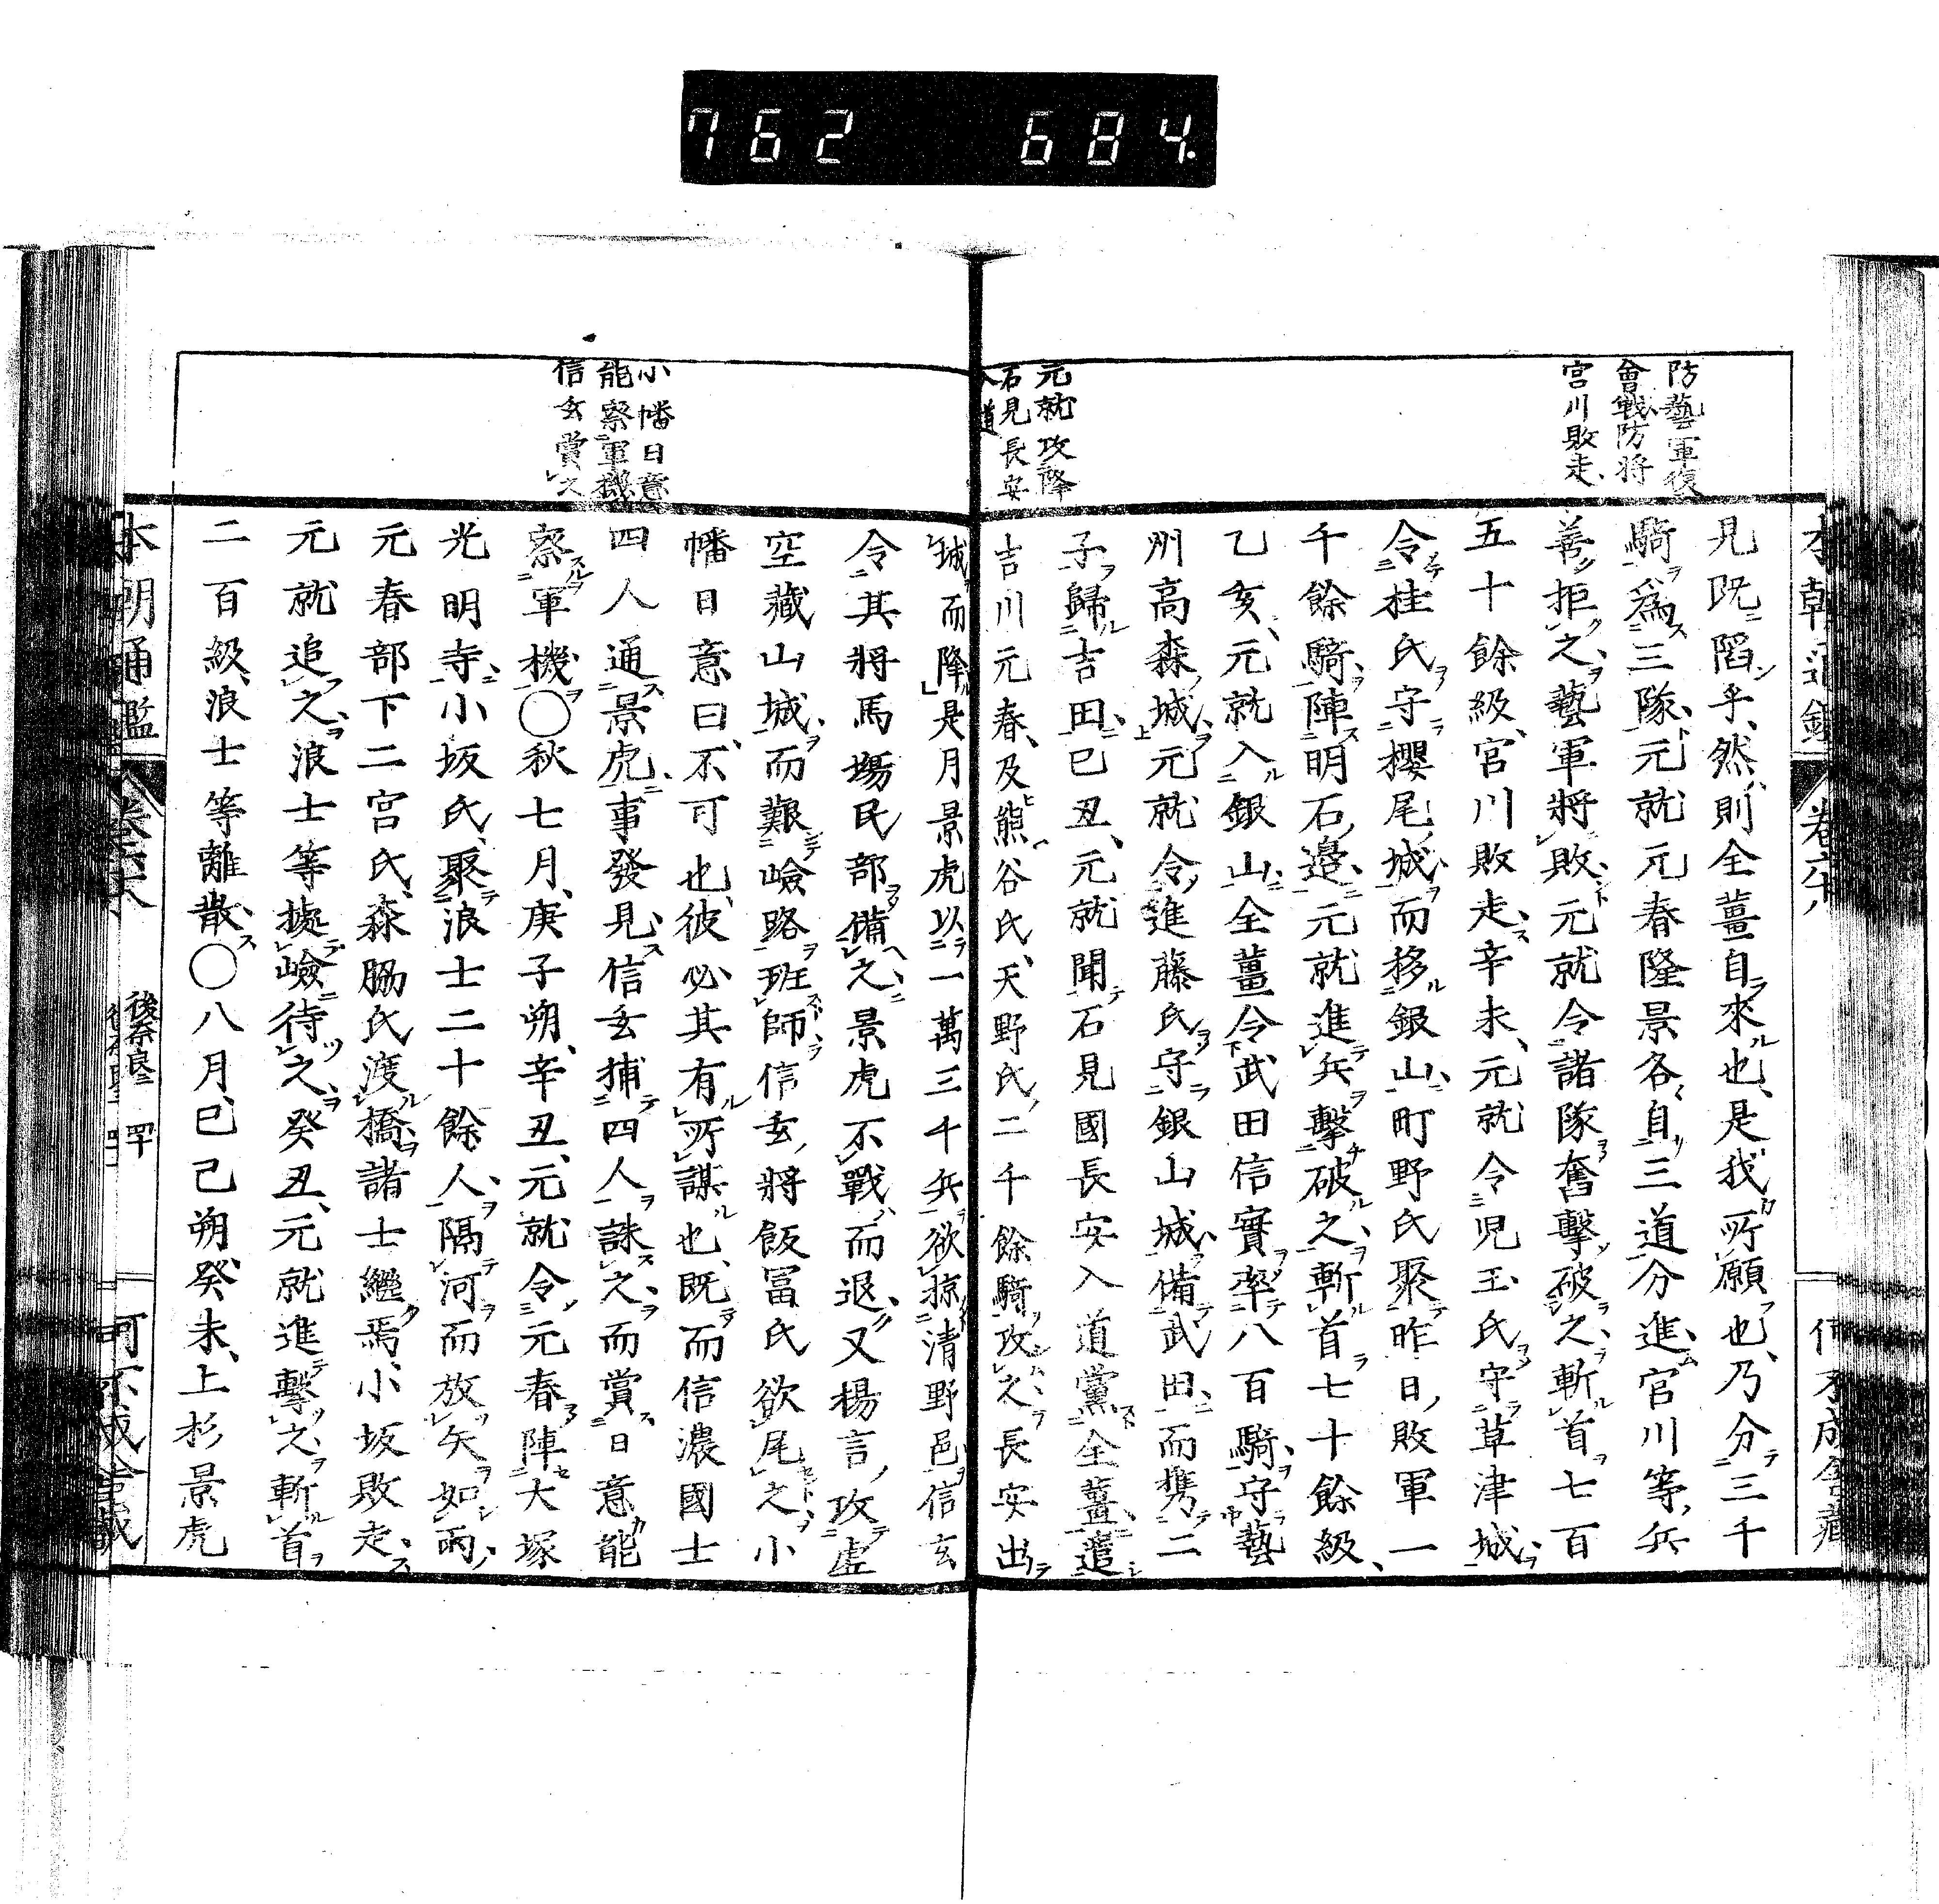 762 684.
防藝軍復
會戰防将
宮川敗走
見既陷乎然則全薑自來也是我所願也乃分三千
騎爲三隊元就元春隆景各自三道分進宮川等兵
善拒之藝軍將敗元就令諸隊奮擊破之斬首七百
五十餘級宮川敗走辛未元就令児玉氏守草津城
令桂氏守櫻尾城而移銀山町野氏聚昨日敗軍一
千餘騎陣明石邉元就進兵擊破之斬首七十餘級
乙亥元就入銀山全薑令武田信實率八百騎守藝
州高森城元就令進藤氏守銀山城備武田而携二
子歸吉田巳丑元就聞石見國長安入道黨全薑遣
吉川元春及熊谷氏天野氏二千餘騎攻之長安出
元就攻降
石見長安
入道
城而降是月景虎以一萬三千兵欲掠清野邑信玄
令其將馬塲民部備之景虎不戰而退又楊言攻虛
空藏山城而艱嶮路班師信玄將飯冨氏欲尾之小
幡日意曰不可也彼必其有所謀也既而信濃國士
四人通景虎事發見信玄捕四人誅之而賞日意能
察軍機○秋七月庚子朔辛丑元就令元春陣大塚
光明寺小坂氏聚浪士二十餘人隔河而放矢如雨
元春部下二宮氏森脇氏渡橋諸士繼焉小坂敗走
元就追之浪士等據嶮待之癸丑元就進擊之斬首
二百級浪士等離散○八月巳己朔癸未上杉景虎
小幡日意
能察軍機
信玄賞之
本朝通鑑 卷六十八 後奈良三 罕 何不成舎藏